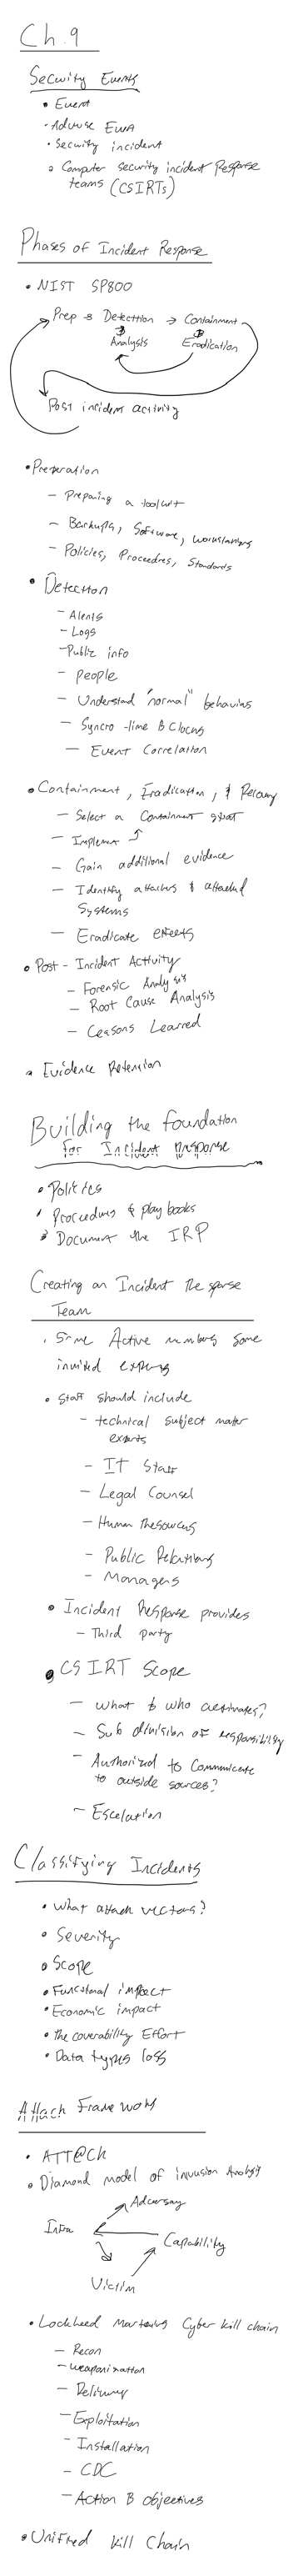 Ch. 9
Security Events
• Event
• Adverse Event
• Security incident
• Computer security incident Response
teams (CSIRTs)
Phases of Incident Response
• NIST SP800
Prep → Detection → Containment
Analysis Eradication
Post incident activity
• Preparation
- Preparing a toolkit
- Backups, Software, workstations
- Policies, Proceedres, Standards
• Detection
- Alerts
- Logs
- Public info
- people
- Understand "normal" behavior
- Syncro -time Clocks
- Event Correlation
• Containment, Eradication, & Recovery
- Select a Containment strat
- Implement
- Gain additional evidence
- Identify attackers & attacked
Systems
- Eradicate effects
• Post-Incident Activity
- Forensic Analysis
- Root Cause Analysis
- Leasons Learned
• Evidence Retension
Building the foundation
for Incident Response
• Policies
• Procedures & playbooks
• Document the IRP
Creating an Incident Response
Team
• Some Active members some
invited experts
• Staff should include
- technical subject matter
experts
- IT Staff
- Legal Counsel
- Human Resources
- Public Relations
- Managers
• Incident Response provides
- Third party
• CSIRT Scope
- What & who activates?
- Sub division of responsibility
- Authorized to Communicate
to outside sources?
- Escelation
Classifying Incidents
• What attack vectors?
• Severity
• Scope
• Functional impact
• Economic impact
• Recoverability Effort
• Data types loss
Attack Frameworks
• ATT@Ck
• Diamond model of invusion Analysis
Adversary
Infra
Capability
Victim
• Lockheed Martins Cyber kill chain
- Recon
- weaponization
- Delivery
- Exploitation
- Installation
- CDC
- Action objectives
• Unified kill Chain